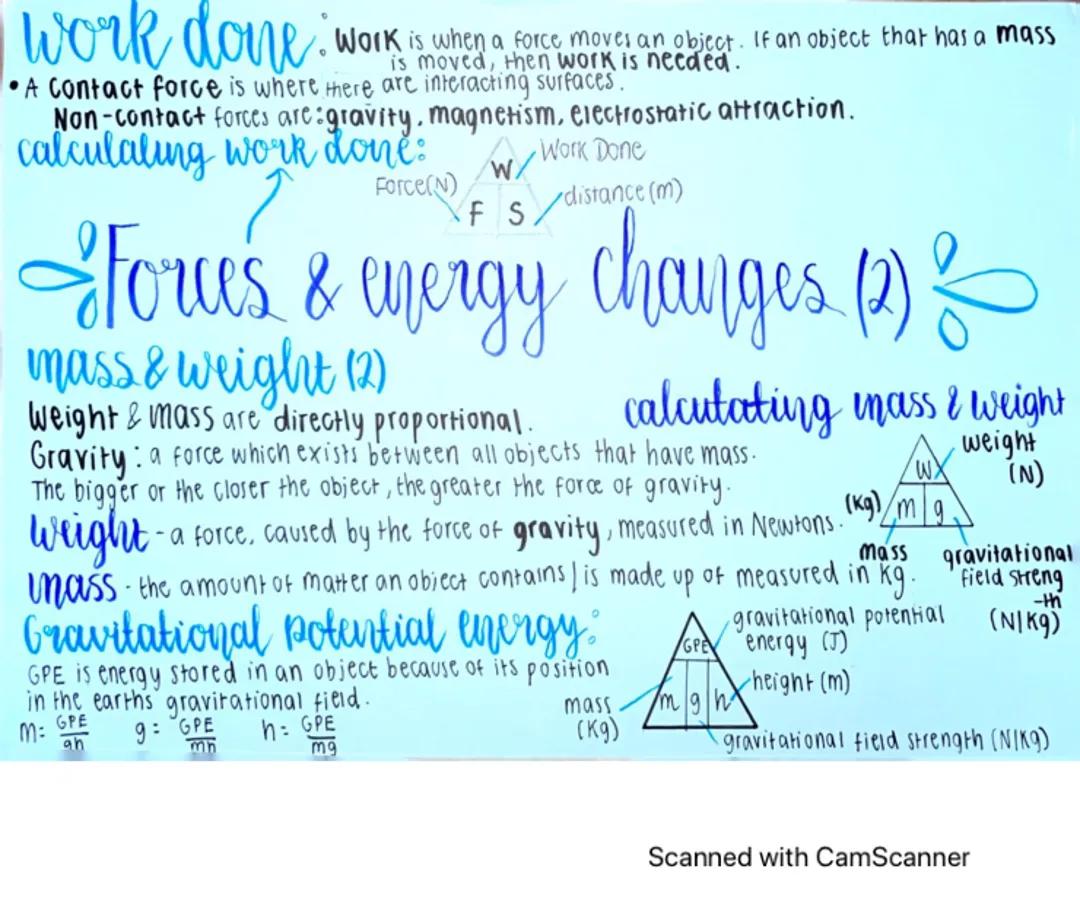 Work done: Work is when a force moves an object. If an object that has a mass
is moved, then work is needed.
• A contact force is where there are interacting surfaces.
Non-contact forces are: gravity, magnetism, electrostatic attraction.
calculating work done:
W
Work Done
Force(N)
distance (m)
F S
Forces & energy changes (2)
mass & weight (2)
Weight & mass are directly proportional.
Gravity: a force which exists between all objects that have mass.
The bigger or the closer the object, the greater the force of gravity.
Weight - a force, caused by the force of gravity, measured in Newtons.
mass - the amount of matter an object contains / is made up of measured in Kg.
calcutating mass & weight
weight
(N)
W
(Kg)
m g
mass
gravitational
field streng
-th
(N/Kg)
Gravitational potential energy:
GPE is energy stored in an object because of its position
in the earths gravitational field.
m= GPE
gh
g= GPE
mh
h= GPE
mg
gravitational potential
energy (J)
GPE
height (m)
mass
(Kg)
m g h
gravitational field strength (N/Kg)
Scanned with CamScanner